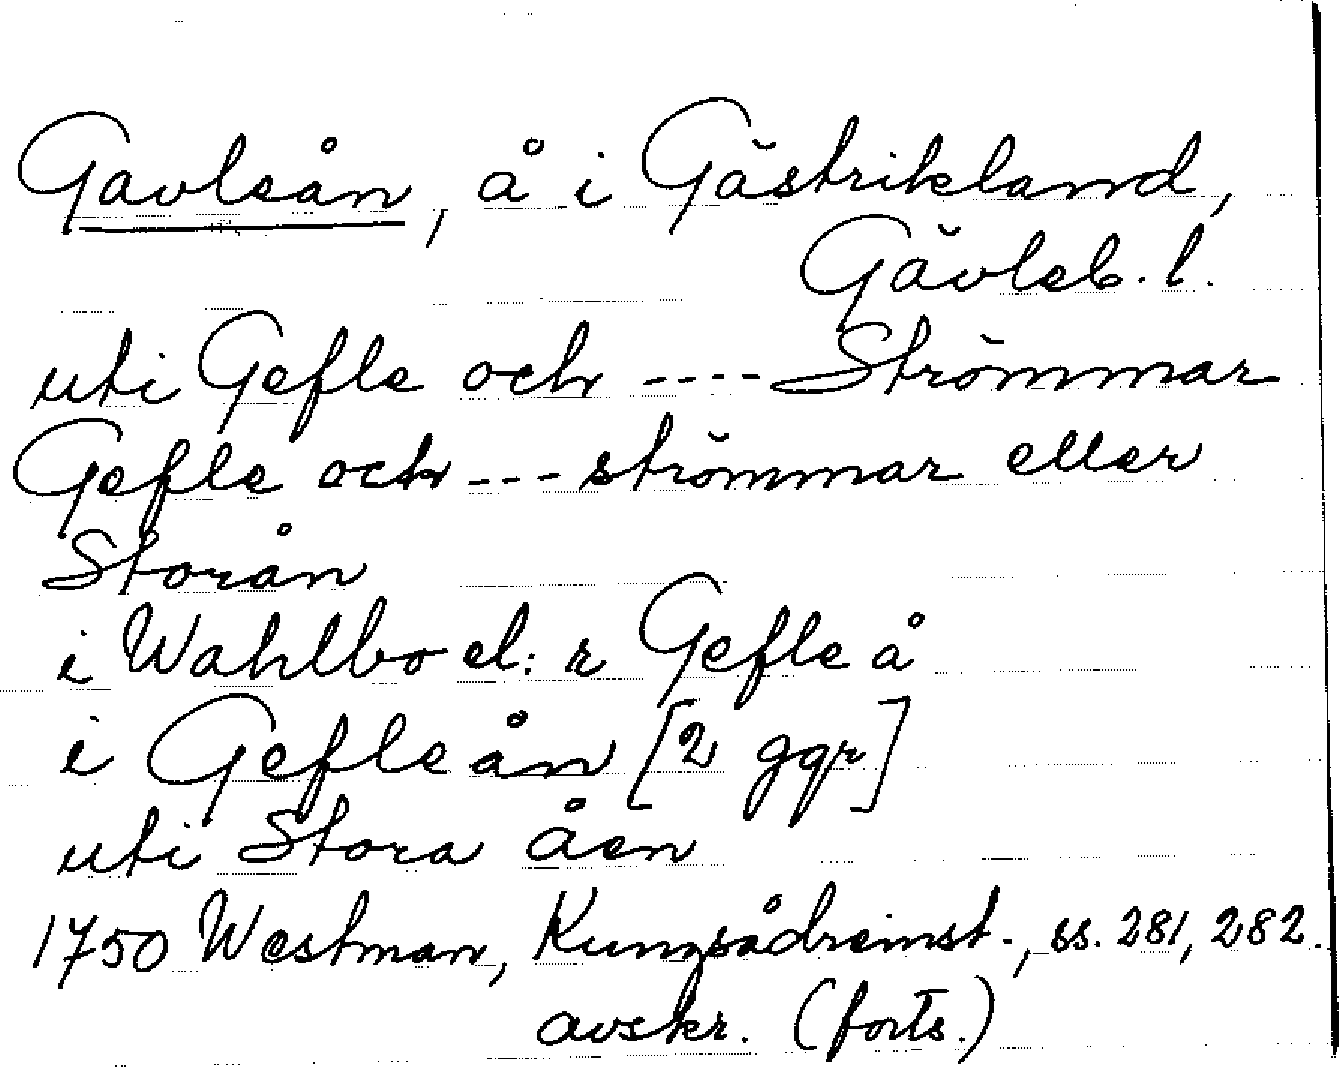 Gavleån, å i Gästrikland,
Gävleb. l.
uti Gefle och ---- Strömmar
Gefle och --- strömmar eller
Storån
i Wahlbo el: r Gefle å
i Gefleån [2 ggr]
uti Stora åen
1750 Westman, Kungsådreinst., ss. 281, 282.
avskr. (forts.)